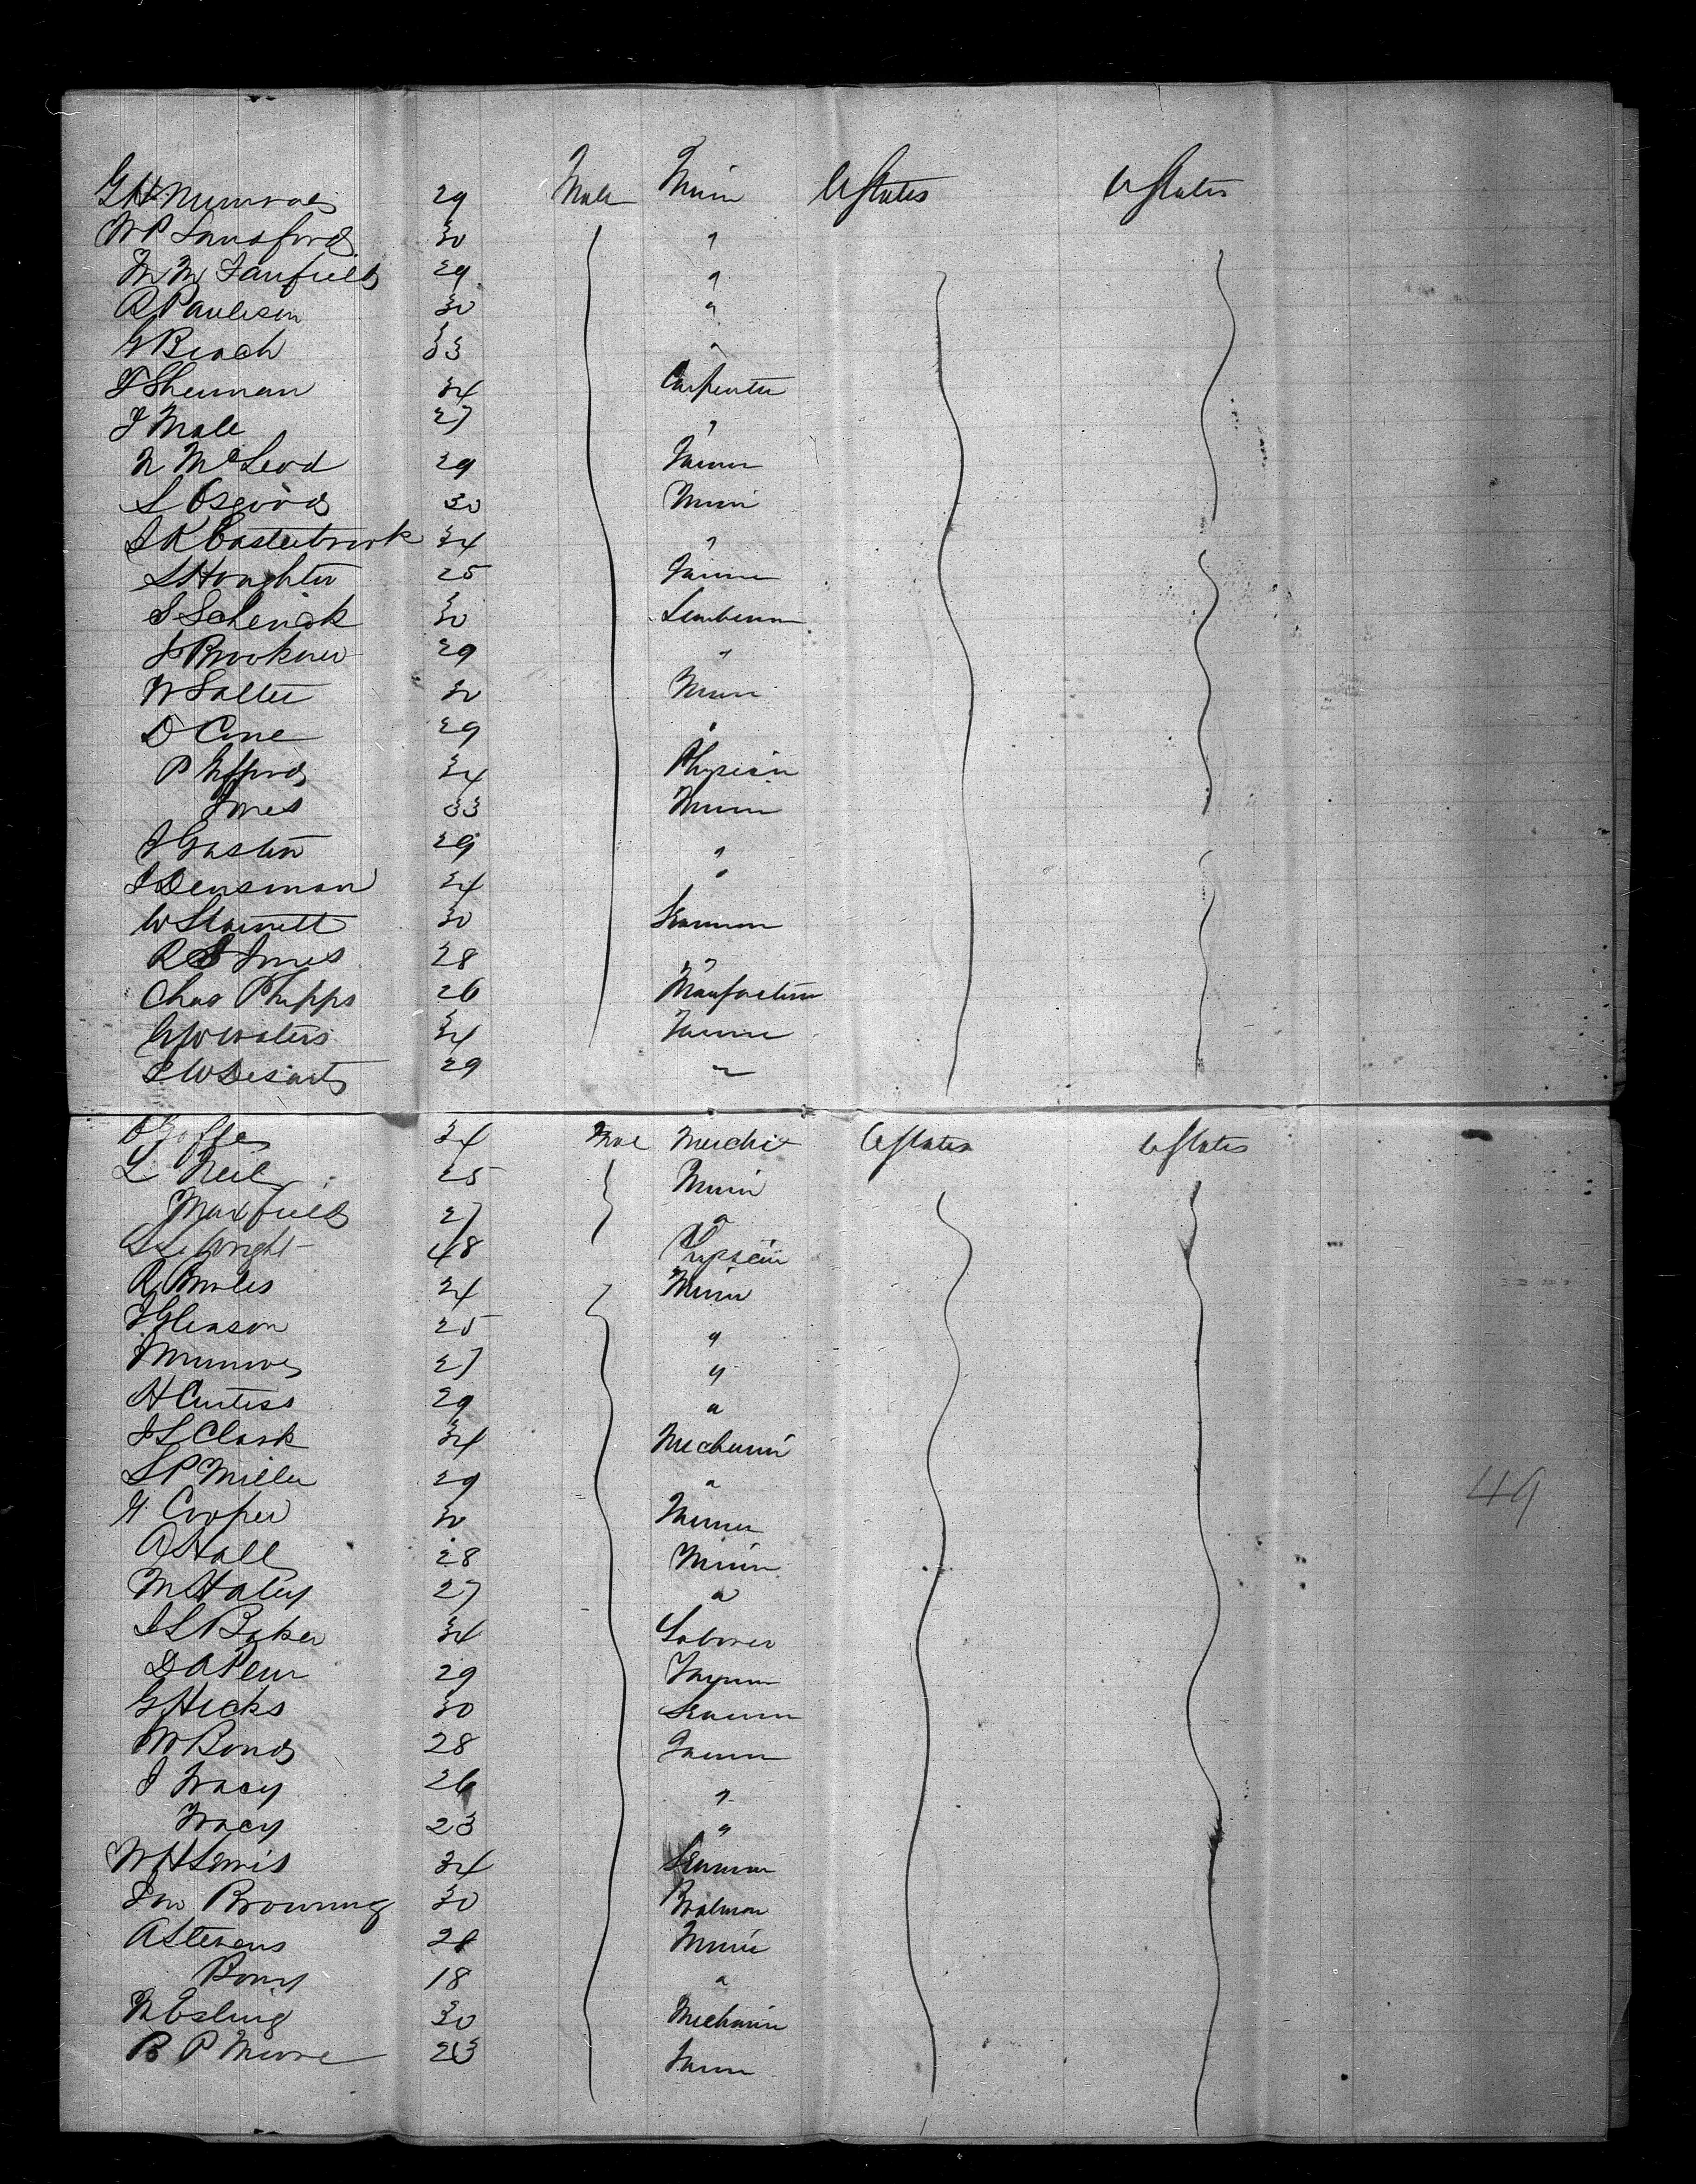 G H Munroe 29 Male Miner U States U States
W P Sandford 30 "
M M Fanfield 29 "
R Pauleson 30 "
G Beach 33 "
F Sherman 34 Carpenter
J Male 27 "
N McLeod 29 Farmer
S Osgood 30 Miner
S K Easterbrook 34 "
S Houghter 25 Farmer
S Schenck 30 Lumberman
J Brookner 29 "
W Salter 30 Miner
D Cone 29 "
P Gifford 34 Physician
Jones 33 Miner
J Gaston 29 "
J Densman 24 "
W Starrett 30 Seaman
R S Jones 28 "
Chas Phipps 26 Manfacturer
G W Waters 34 Farmer
S W Desarts 29 "
O Goffe 34 Male Mercht U States U States
L Neil 25 Miner
Maxfield 27 "
S S Wright 48 Physician
R Boales 24 Miner
J Gleason 25 "
J Munroe 27 "
H Curtiss 29 "
J S Clark 34 Mechanic
S P Miller 29 "
G Cooper 30 Farmer
A Hall 28 Miner
M Haley 27 "
S L Baker 34 Laborer
D A Penn 29 Farmer
G Hicks 30 Seaman
W Bond 28 Farmer
J Tracy 26 "
Tracy 23 "
W H Lewis 34 Seaman
Jno Browning 30 Boatman
A Stevens 28 Miner
Bony 18 "
N Esling 30 Mechanic
B P Moore 23 Farmer
49